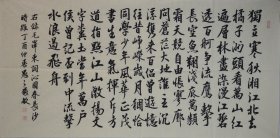 獨立寒秋湘江北去
橘子洲頭看萬山紅
遍層林盡染漫江碧
透百舸爭流鷹擊
長空魚翔淺底萬類
霜天競自由悵寥廓
問蒼茫大地誰主沉
浮攜來百侣曾遊憶
往昔崢嶸歲月稠恰
同學少年風華正茂
書生意氣揮斥方
遒指點江山激揚文
字糞土當年萬户
侯曾記否到中流擊
水浪遏飛舟
右録毛澤東詞沁園春長沙
時維丁酉仲春